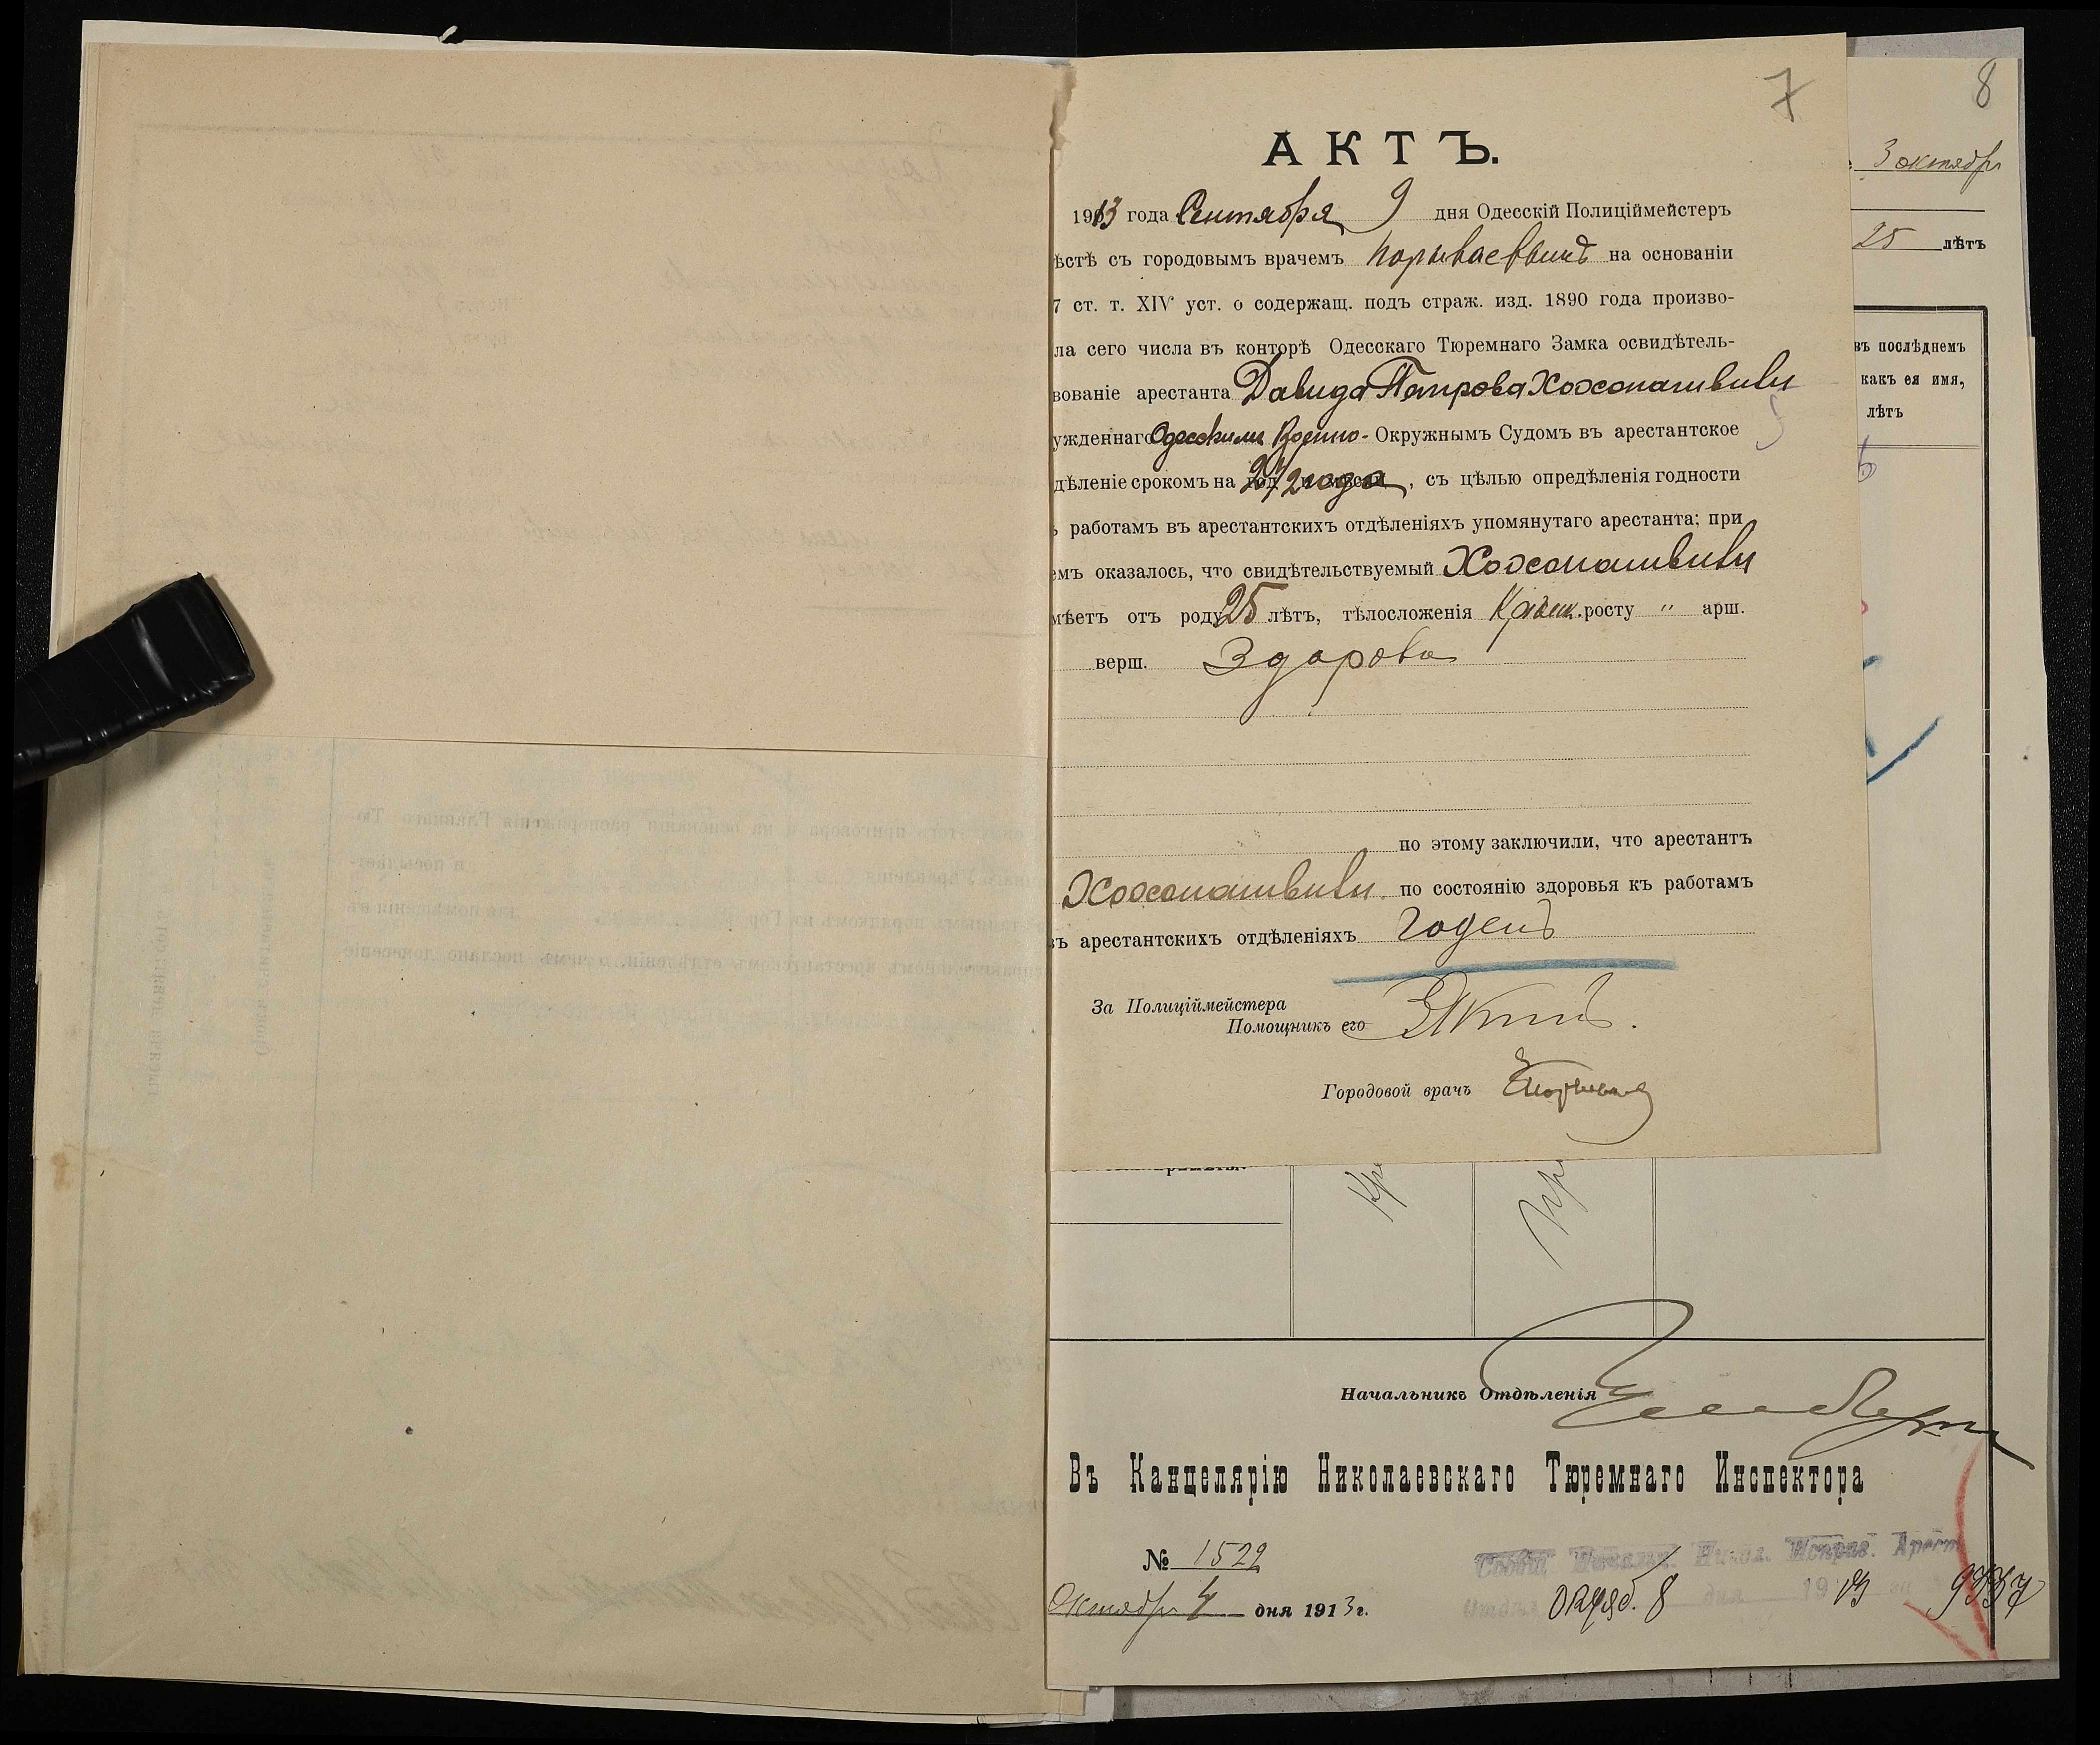 7
АКТЪ.
1913 года Сентября 9 дня Одесскій Полиціймейстеръ
ѣстѣ съ городовымъ врачемъ на основаніи
7 ст. т. XIV уст. о содержащ. подъ страж. изд. 1890 года произво-
ла сего числа въ конторѣ Одесскаго Тюремнаго Замка освидѣтель-
вованіе арестанта Давида Петрова Хохонашвили
ужденнаго Одесскимъ Военно-Окружнымъ Судомъ въ арестантское
дѣленіе срокомъ на 2½ года, съ цѣлью опредѣленія годности
ъ работамъ въ арестантскихъ отдѣленіяхъ упомянутаго арестанта; при
емъ оказалось, что свидѣтельствуемый Хохонашвили
мѣетъ отъ роду 25 лѣтъ, тѣлосложенія росту " арш.
верш. Здорова
по этому заключили, что арестантъ
Хохонашвили по состоянію здоровья къ работамъ
въ арестантскихъ отдѣленіяхъ годенъ
За Полиціймейстера
Помощникъ его
Городовой врачъ
8
3 октября
25 лѣтъ
въ послѣднемъ
какъ ея имя,
лѣтъ
Начальникъ Отдѣленія
Въ Канцелярію Николаевскаго Тюремнаго Инспектора
№ 1529
Октября 4 дня 1913 г.
Сообщ. Начальн. Никол. Исправ. Арест.
Отдѣл. октяб. 8 дня 1913 за 9357